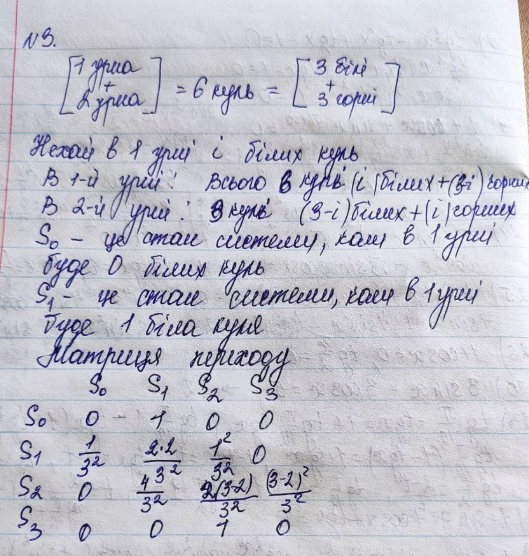 N3.
[1 урна + 2 урна] = 6 куль = [3 білі + 3 чорні]
Нехай в 1 урні i білих куль
В 1-й урні: Всього 3 кулі (i) білих + (3-i) чорних
В 2-й урні: 3 кулі (3-i) білих + (i) чорних
S₀ – це стан системи, коли в 1 урні
буде 0 білих куль
S₁ – це стан системи, коли в 1 урні
буде 1 біла куля
Матриця переходу
S₀ S₁ S₂ S₃
S₀ 0 1 0 0
S₁ 1/3² 2·2/3² 1²/3² 0
S₂ 0 2(3-2)/3² (3-2)²/3²
S₃ 0 0 1 0